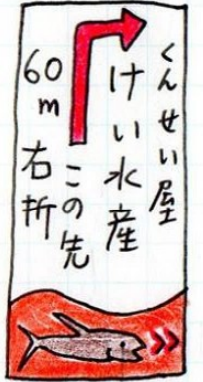 くんせい屋
けい水産
この先
60m右折